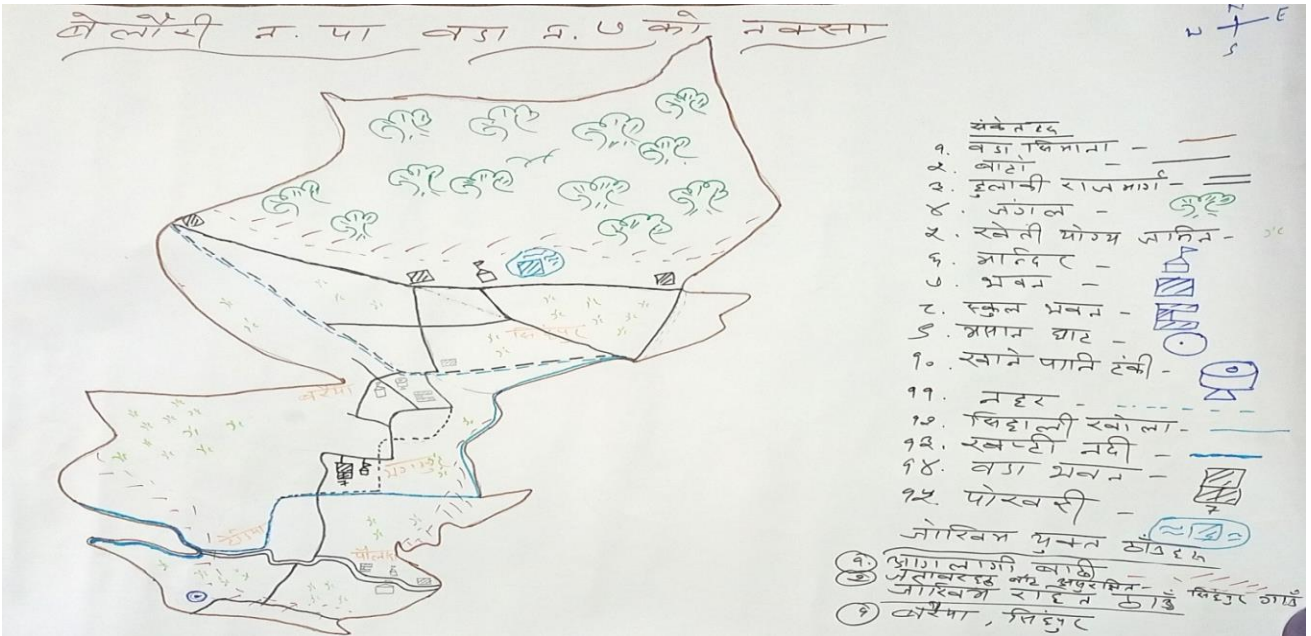 बेलौरी न. पा वडा न. ७ को नक्सा
N
E
W
S
संकेतहरु
१. वडा सिमाना -
२. बाटो -
३. हुलाकी राजमार्ग -
४. जंगल -
५. खेती योग्य जमिन -
६. मन्दिर -
७. भवन -
८. स्कुल भवन -
९. मसान घाट -
१०. खाने पानि टंकी -
११. नहर -
१२. सिहाली खोला -
१३. खप्टी नदी -
१४. वडा भवन -
१५. पोखरी -
जोखिम युक्त ठाँउहरु
१. आगलागी बाढी
२. जनावरहरु बाट असुरक्षित - सिंहपुर गाउँ
जोखिम रहित ठाउँ
१ बरैया, सिंहपुर
सिंहपुर
बरैया